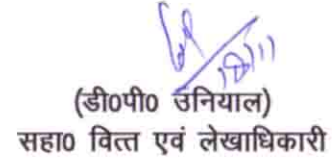 (डी०पी० उनियाल)
सहा० वित्त एवं लेखाधिकारी